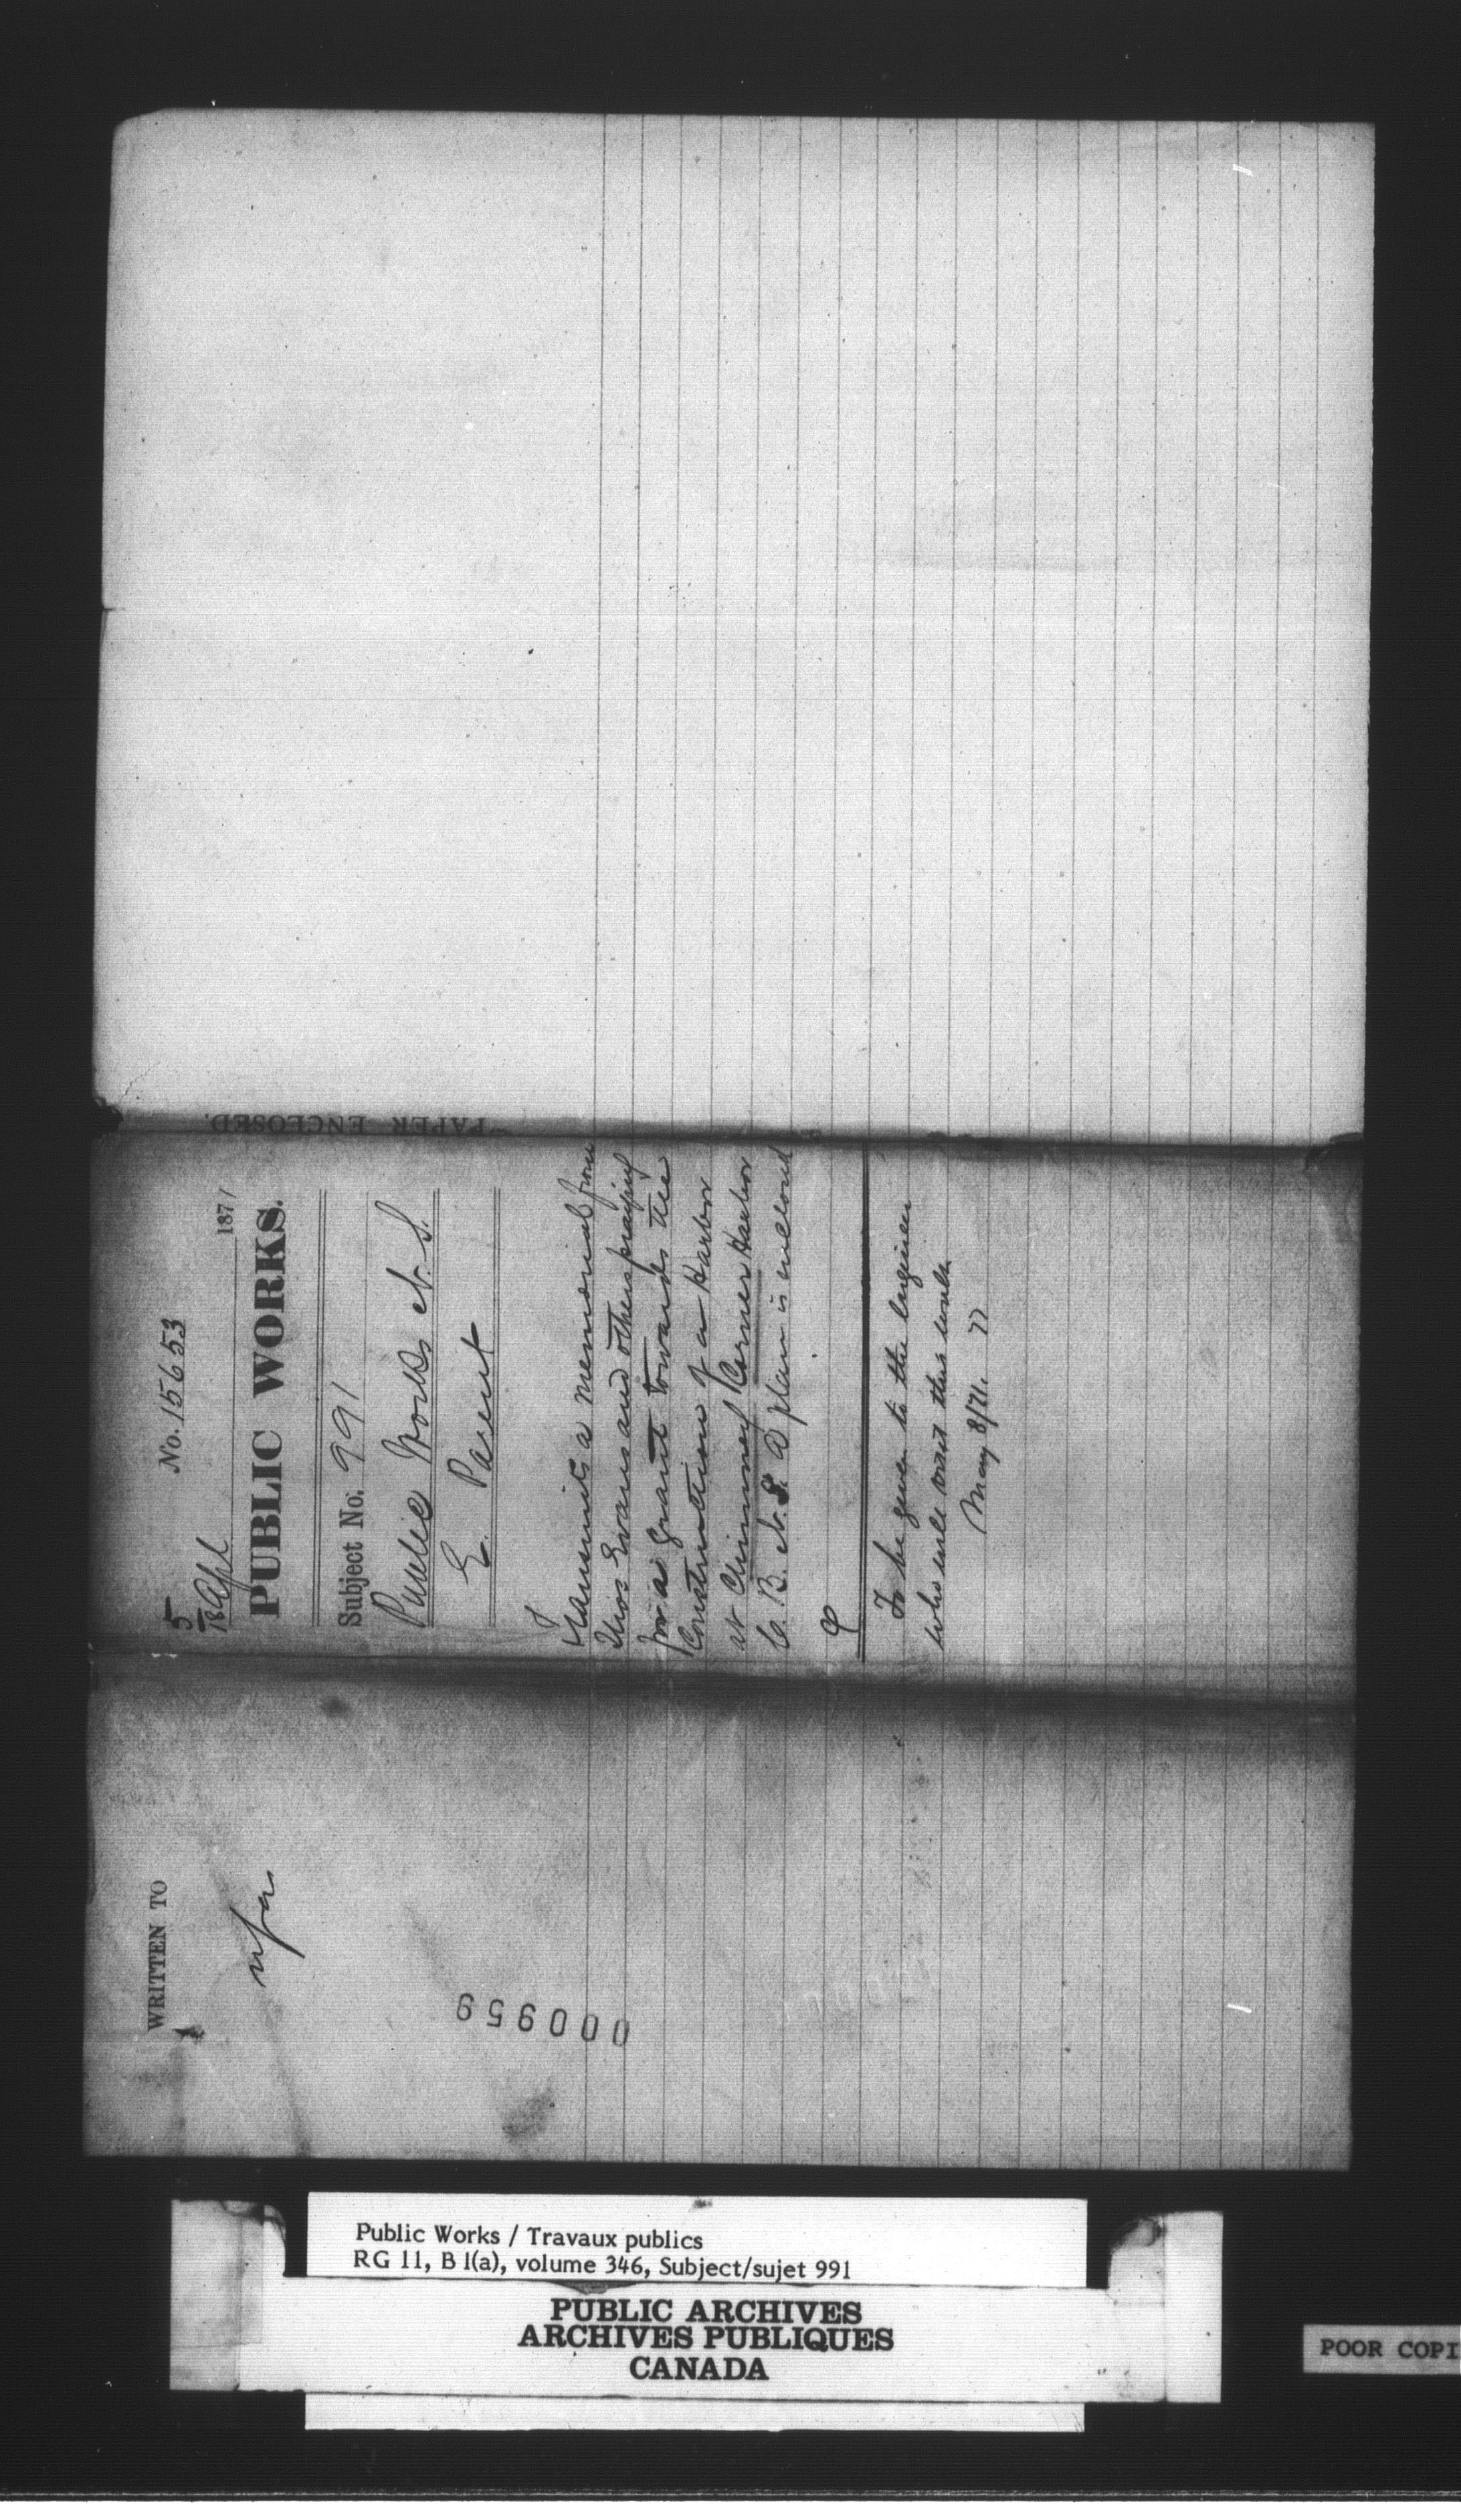 No. 15653
5
18 Apl 1871
PUBLIC WORKS.
Subject No. 991
Public Works N. S.
E. Parent
Transmits a memorial from
Thos Evans and others praying
for a Grant towards the
Construction of a Harbor
at Chimney Corner Harbor
C. B. N. S. A plan is enclosed
To be given to the Engineer
who will visit this work
May 8/71.
PAPER ENCLOSED.
WRITTEN TO
000959
Public Works / Travaux publics
RG 11, B 1(a), volume 346, Subject/sujet 991
PUBLIC ARCHIVES
ARCHIVES PUBLIQUES
CANADA
POOR COPI